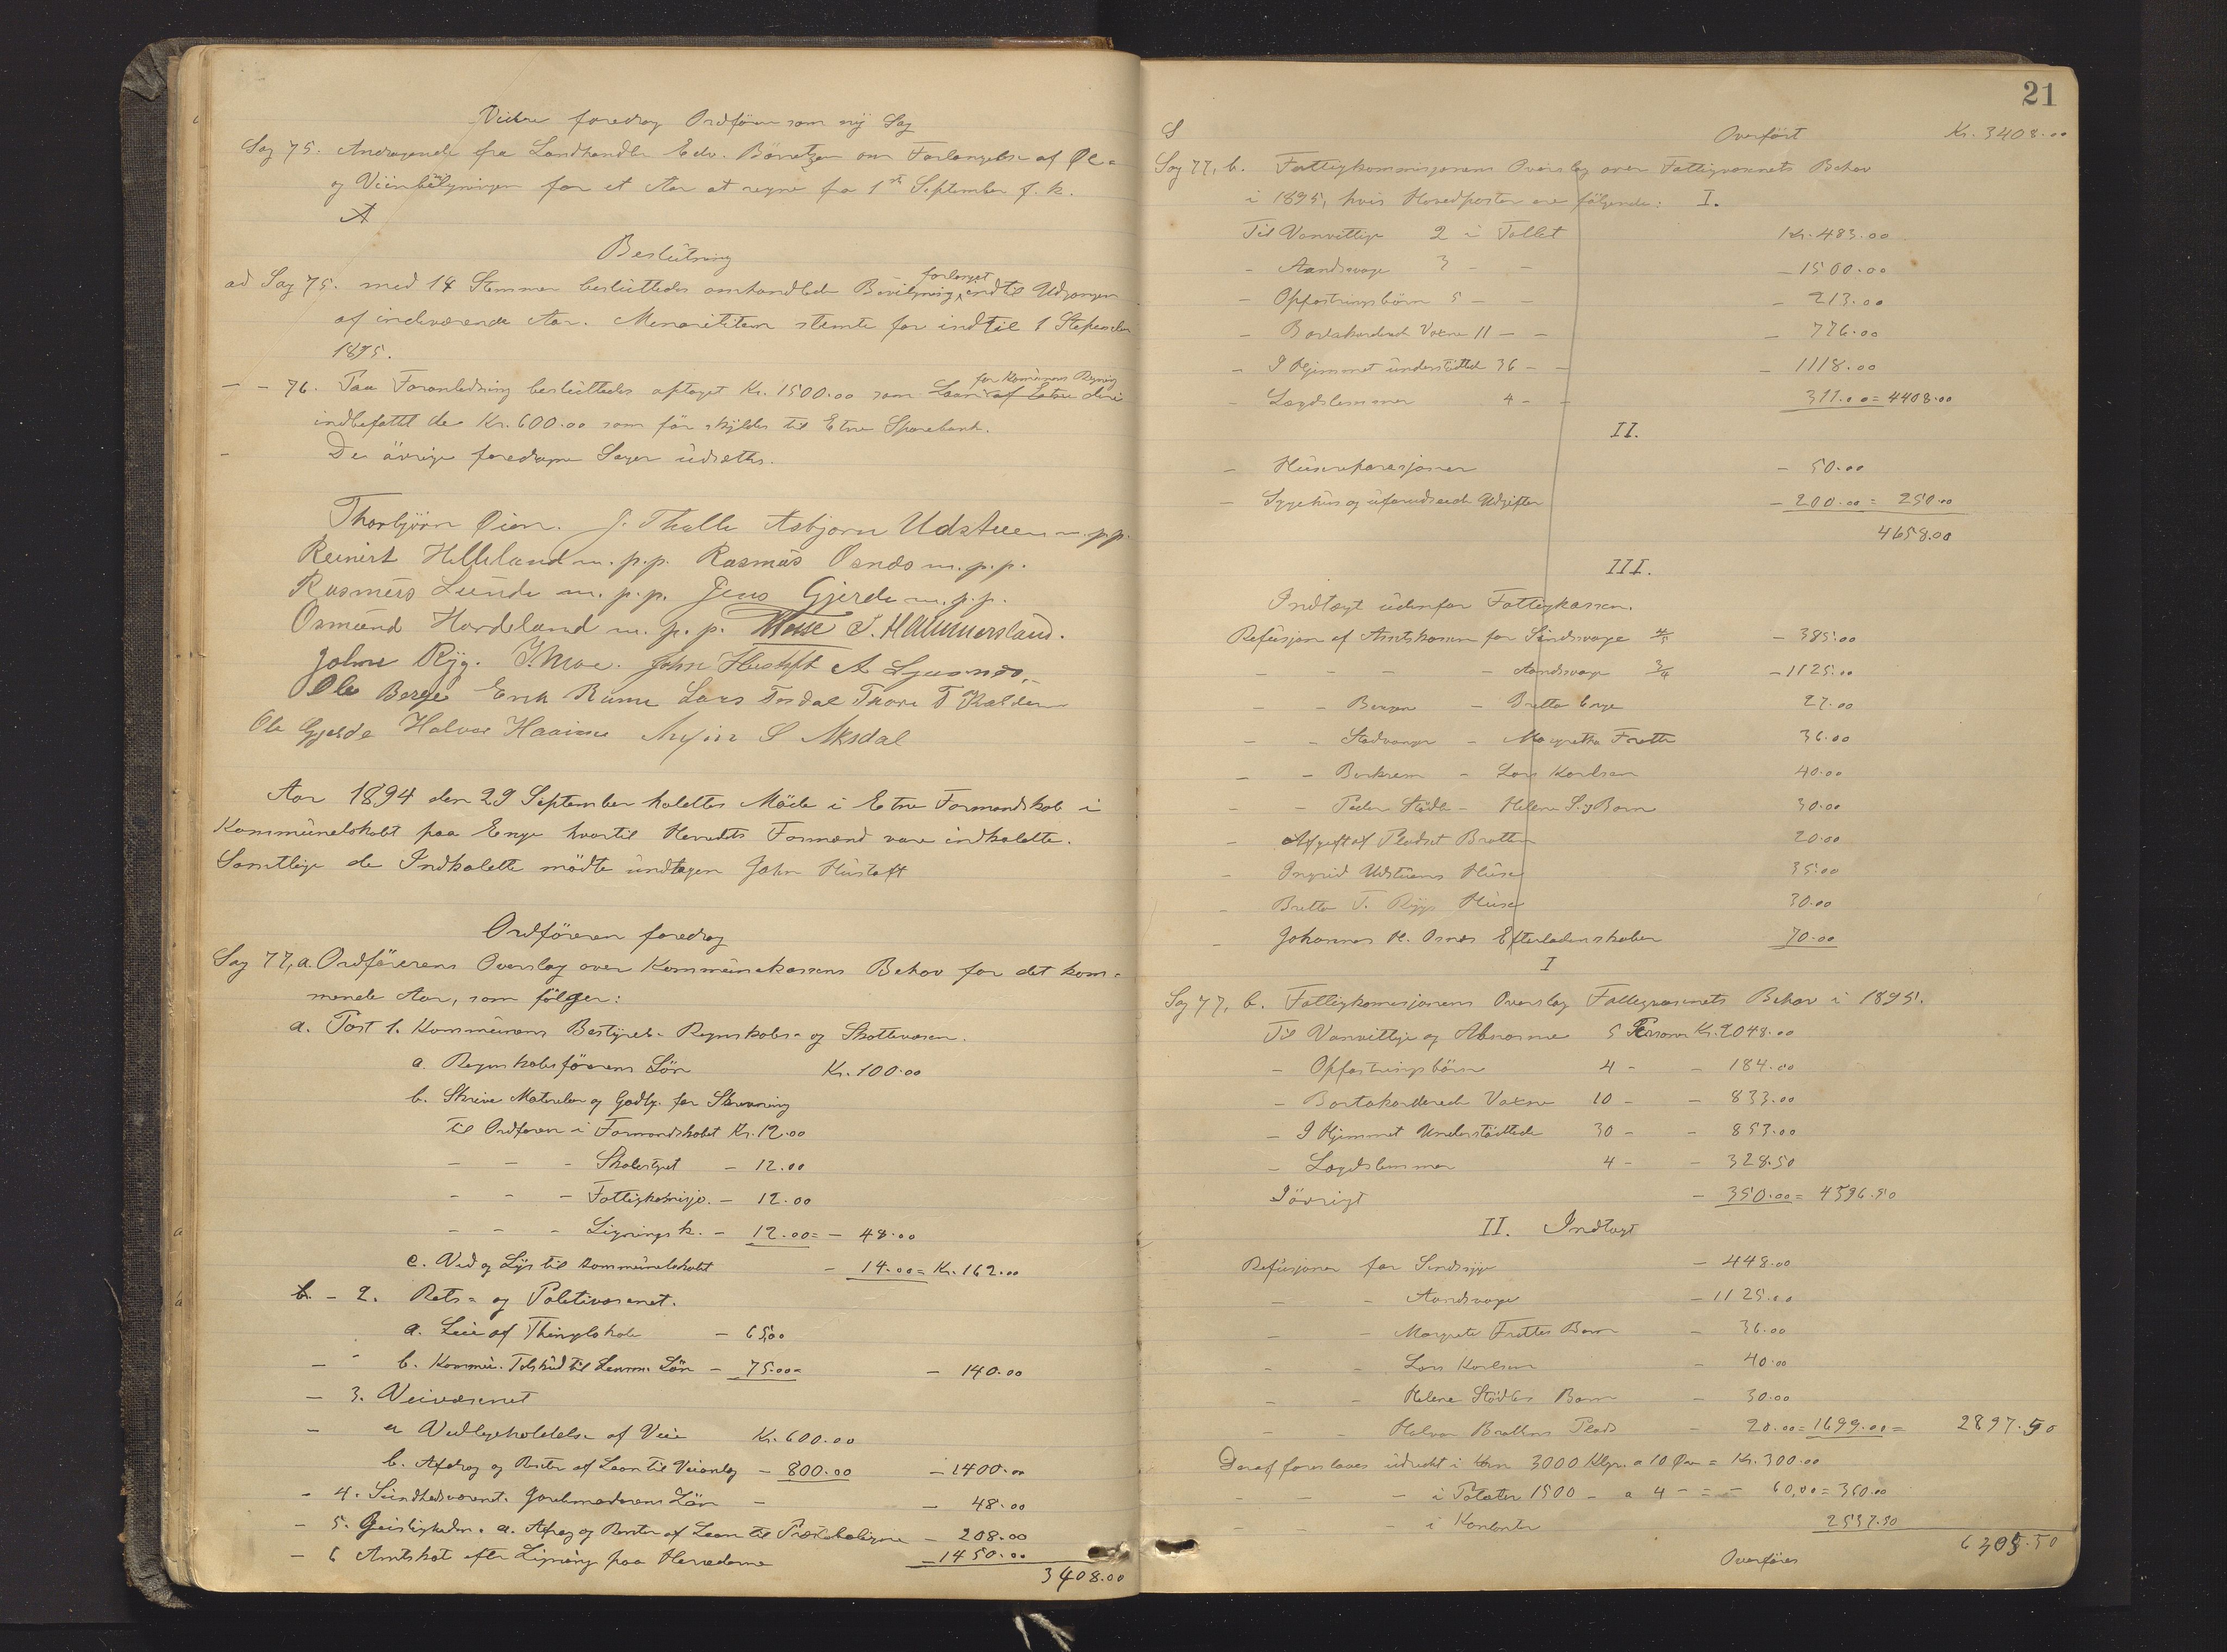 Videre foredrog Ordføreren som ny Sag
Sag 75. Andragende fra Landhandler Edv. Børretzen om Forlængelse af Øl-
og Viinbevilgningen for et Aar at regne fra 1ste September f. k.
A
Beslutning
forlænget
ad Sag 75. med 14 Stemmer besluttedes omhandlede Bevilgning indtil Udgangen
af indeværende Aar. Minoriteten stemte for indtil 1 September
1895.
for Komunens Regning
— — 76. Paa Foranledning besluttedes optaget Kr. 1500.00 som Laan af Etne deri
indbefattet de Kr. 600.00 som før skyldes til Etne Sparebank.
— De øvrige foredragne Sager udsættes.
Thorbjørn Øien. J. Thalle Asbjørn Udstuen m.p.p.
Reinert Hilleland m.p.p. Rasmus Osnes m.p.p.
Rasmus Lunde m.p.p. Jens Gjerde m.p.p.
Osmund Hardeland m.p.p. S. Hammersland.
John Ryg. I. Moe. John Hustoft A Ljusnes.
Ole Berge Erik Rame Lars Tesdal Thore T Kalden
Ole Gjerde Halvor Haaime S Aksdal
Aar 1894 den 29 September holdtes Møde i Etne Formandskab i
Kommunelokalet paa Enge hvortil Herredets Formænd vare indkaldte.
Samtlige de Indkaldte mødte undtagen John Hustoft
Ordføreren foredrog
Sag 77, a. Ordførerens Overslag over Kommunekassens Behov for det kom-
mende Aar, som følger:
a. Post 1. Kommunens Bestyrelse- Regnskabs- og Skattevæsen.
a. Regnskabsførerens Løn Kr. 100.00
b. Skrive Materialer og Godtg. for Skrivning
til Ordføreren i Formandskabet Kr. 12.00
— — — Skolestyret — 12.00
— — — Fattigkomisjo. — 12.00
— — — Ligningsk. — 12.00 = — 48.00
c. Ved og Lys til Kommunelokalet — 14.00 = Kr. 162.00
b. — 2. Rets- og Politivæsenet.
a. Leie af Thinglokale — 65.00
— b. Kommu. Tilskud til Lensm. Løn — 75.00 = — 140.00
— 3. Veivæsenet
— a Vedligeholdelse af Veie Kr. 600.00
b. Afdrag og Renter af Laan til Veianlæg — 800.00 — 1400.00
— 4. Sundhedsvæsenet. Jordemoderens Løn — — 48.00
— 5. Geistligheden. a. Afdrag og Renter af Laan til Præsteboligen — 208.00
— 6 Amtskat efter Ligning paa Herrederne — 1450.00
3408.00
21
S Overført Kr. 3408.00
Sag 77, b. Fattigkommisjonens Overslag over Fattigvæsenets Behov
i 1895, hvis Hovedposter ere følgende: I.
Til Vanvittige 2 i Tallet Kr. 483.00
— Aandssvage 3 — — — 1500.00
— Opfostringsbørn 5 — — — 213.00
— Bortakkorderede Voxne 11 — — — 776.00
— I Hjemmet understøttede 36 — — — 1118.00
— Lægdslemmer 4 — — 311.00 = 4408.00
II.
— Husreparasjoner — 50.00
— Sygehus og uforudseede Udgifter — 200.00 = 250.00
4658.00
III.
Indtægt udenfor Fattigkassen.
Refusjon af Amtskassen for Sindssvage 4/5 — 385.00
— — — — Aandssvage 3/4 — 1125.00
— — Bergen — Britta Enge 27.00
— — Stavanger — Margretha Frette 36.00
— — Birkrem — Lars Karlsen 40.00
— — Peder Stødle — Helene S. og Barn 30.00
— Afgift af Pladset Bratten 20.00
— Ingrid Udstuens Huse 35.00
— Britta T. Ryggs Huse 30.00
— Johannes H. Osnes Efterladenskaber 70.00
I
Sag 77, b. Fattigkomisjonens Overslag Fattigvæsenets Behov i 1895.
Til Vanvittige og Abnorme 5 Personer Kr. 2048.00
— Opfostringsbørn 4 — — 184.00
— Bortakorderede Voxne 10 — — 833.00
— I Hjemmet Understøttede 30 — — 853.00
— Lægdslemmer 4 — — 328.50
Iøvrigt — 350.00 = 4596.50
II. Indtægt
Refusjoner for Sindssyge — 448.00
— — Aandssvage — 1125.00
— — Margrete Frettes Barn — 36.00
— — Lars Karlsen — 40.00
— — Helene Stødles Barn — 30.00
— — Halvor Brattens Plads — 20.00 = 1699.00 = 2897.50
Deraf foreslaaes udredet i Korn 3000 Klgr. a 10 Øre = Kr. 300.00
— — — i Poteter 1500 — a 4 — = — 60,00 = 360.00
— — — i Kontanter 2537.50
6305.50
Overføres